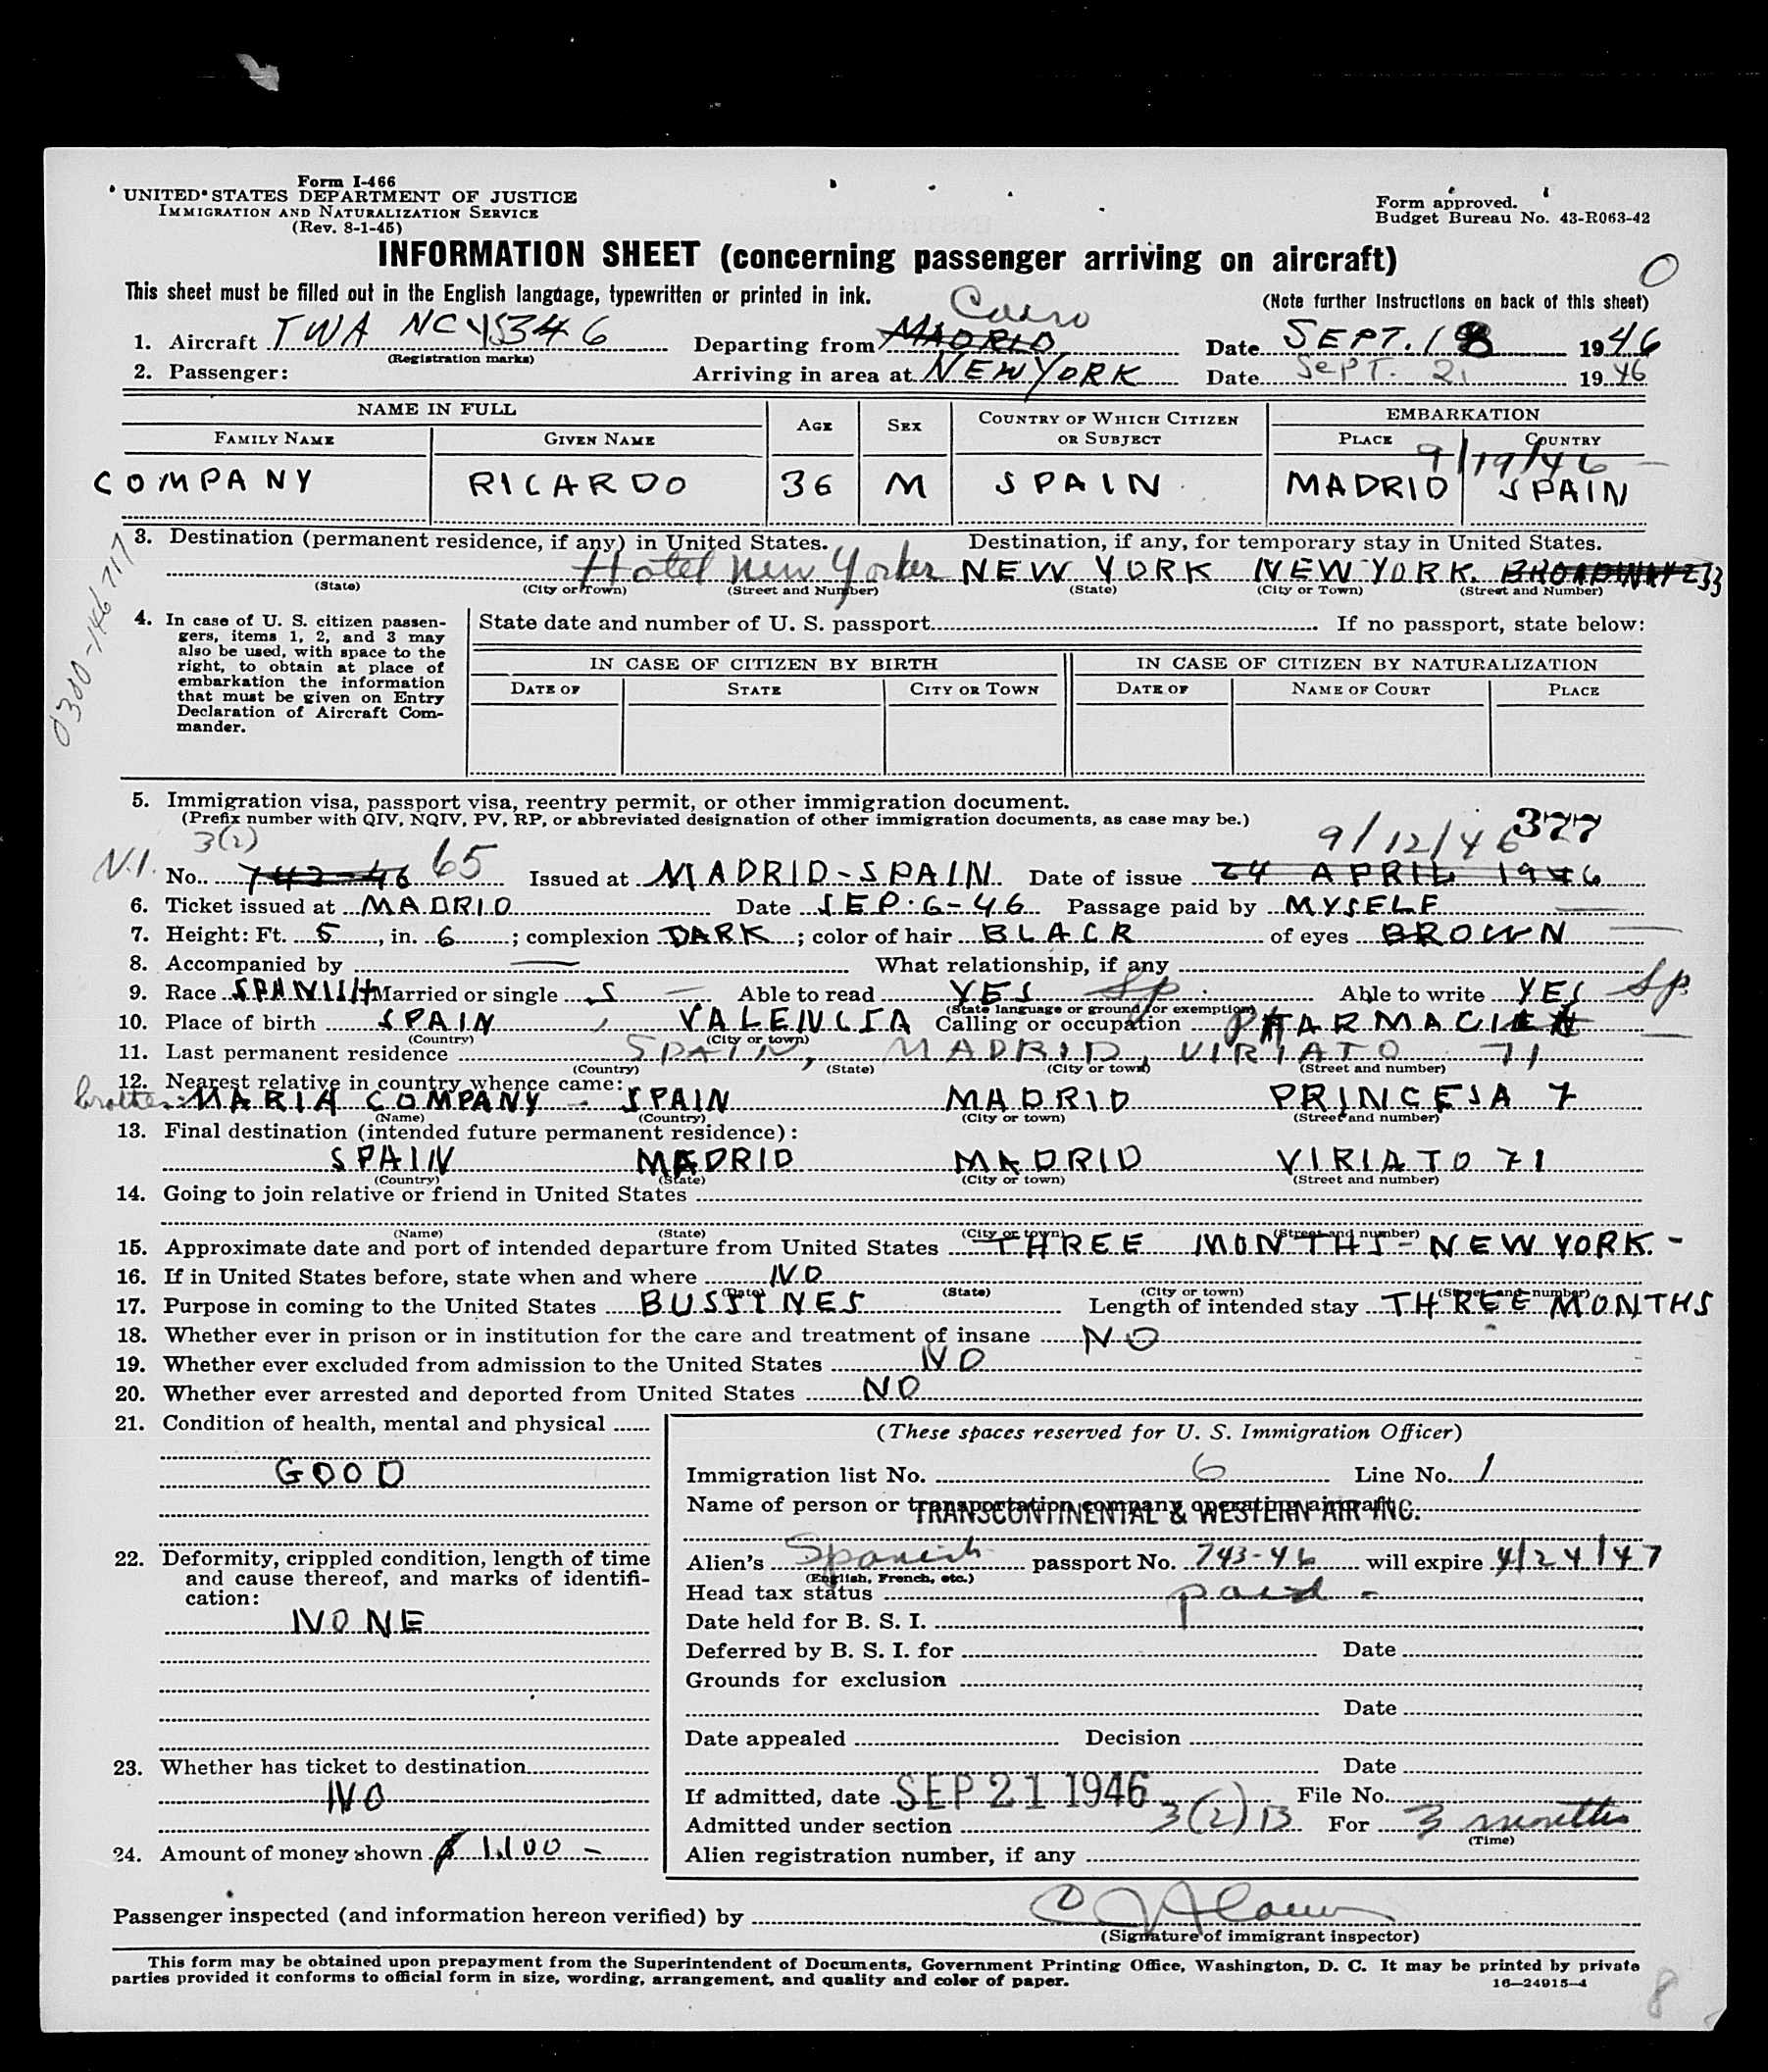 Form I-466
UNITED STATES DEPARTMENT OF JUSTICE
IMMIGRATION AND NATURALIZATION SERVICE
(Rev. 8-1-45)
Form approved.
Budget Bureau No. 43-R063-42
INFORMATION SHEET (concerning passenger arriving on aircraft)
O
This sheet must be filled out in the English language, typewritten or printed in ink.
(Note further Instructions on back of this sheet)
Cairo
1. Aircraft TWA NC 45346 Departing from MADRID Date SEPT. 18 1946
(Registration marks)
2. Passenger: Arriving in area at NEW YORK Date Sept. 21 1946
NAME IN FULL AGE SEX COUNTRY OF WHICH CITIZEN OR SUBJECT EMBARKATION
FAMILY NAME GIVEN NAME PLACE COUNTRY
9/19/46 -
COMPANY RICARDO 36 M SPAIN MADRID SPAIN
3. Destination (permanent residence, if any) in United States. Destination, if any, for temporary stay in United States.
Hotel New Yorker NEW YORK NEW YORK. BROADWAY 233
(State) (City or Town) (Street and Number) (State) (City or Town) (Street and Number)
0300-146717
4. In case of U. S. citizen passen-
gers, items 1, 2, and 3 may
also be used, with space to the
right, to obtain at place of
embarkation the information
that must be given on Entry
Declaration of Aircraft Com-
mander.
State date and number of U. S. passport If no passport, state below:
IN CASE OF CITIZEN BY BIRTH IN CASE OF CITIZEN BY NATURALIZATION
DATE OF STATE CITY OR TOWN DATE OF NAME OF COURT PLACE
5. Immigration visa, passport visa, reentry permit, or other immigration document.
(Prefix number with QIV, NQIV, PV, RP, or abbreviated designation of other immigration documents, as case may be.)
3(2) 9/12/46 377
N.I. No. 742-46 65 Issued at MADRID-SPAIN Date of issue 24 APRIL 1946
6. Ticket issued at MADRID Date SEP. 6-46 Passage paid by MYSELF
7. Height: Ft. 5, in. 6; complexion DARK; color of hair BLACK of eyes BROWN
8. Accompanied by — What relationship, if any
9. Race SPANISH Married or single S Able to read YES Sp. Able to write YES Sp.
(State language or ground for exemption)
10. Place of birth SPAIN, VALENCIA Calling or occupation PHARMACIEN
(Country) (City or town)
11. Last permanent residence SPAIN, MADRID, VIRIATO 71
(Country) (State) (City or town) (Street and number)
12. Nearest relative in country whence came:
brother: MARIA COMPANY - SPAIN MADRID PRINCESA 7
(Name) (Country) (City or town) (Street and number)
13. Final destination (intended future permanent residence):
SPAIN MADRID MADRID VIRIATO 71
(Country) (State) (City or town) (Street and number)
14. Going to join relative or friend in United States
(Name) (State) (City or town) (Street and number)
15. Approximate date and port of intended departure from United States THREE MONTHS - NEW YORK. -
16. If in United States before, state when and where NO
(Date) (State) (City or town) (Street and number)
17. Purpose in coming to the United States BUSSINES Length of intended stay THREE MONTHS
18. Whether ever in prison or in institution for the care and treatment of insane NO
19. Whether ever excluded from admission to the United States NO
20. Whether ever arrested and deported from United States NO
21. Condition of health, mental and physical
GOOD
22. Deformity, crippled condition, length of time
and cause thereof, and marks of identifi-
cation:
NONE
23. Whether has ticket to destination
NO
24. Amount of money shown $ 1.100 -
(These spaces reserved for U. S. Immigration Officer)
Immigration list No. 6 Line No. 1
Name of person or transportation company operating aircraft
TRANSCONTINENTAL & WESTERN AIR INC.
Alien's Spanish passport No. 743-46 will expire 4/24/47
(English, French, etc.)
Head tax status paid -
Date held for B. S. I.
Deferred by B. S. I. for Date
Grounds for exclusion
Date
Date appealed Decision
Date
If admitted, date SEP 21 1946 File No.
Admitted under section 3(2)B For 3 months
(Time)
Alien registration number, if any
Passenger inspected (and information hereon verified) by
(Signature of immigrant inspector)
This form may be obtained upon prepayment from the Superintendent of Documents, Government Printing Office, Washington, D. C. It may be printed by private
parties provided it conforms to official form in size, wording, arrangement, and quality and color of paper. 16—24915-4
8